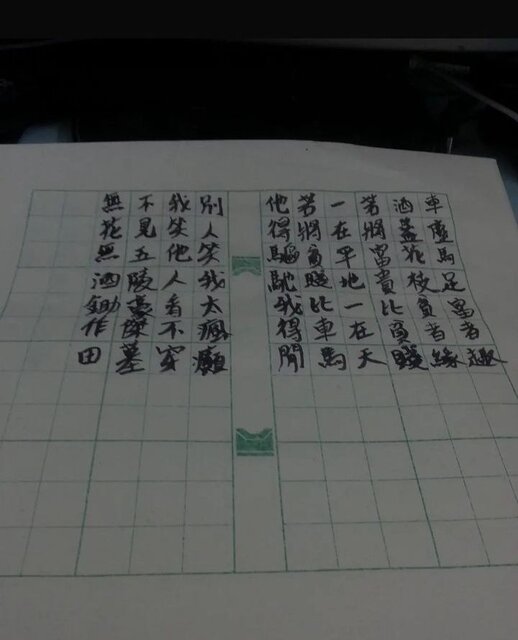 車塵馬足富者趣
酒盞花枝貧者緣
若將富貴比貧賤
一在平地一在天
若將貧賤比車馬
他得驅馳我得閒
別人笑我太瘋癲
我笑他人看不穿
不見五陵豪傑墓
無花無酒鋤作田